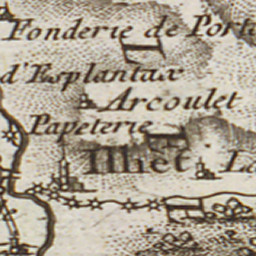 Fonderie de
d'Esplantax
Arcoulet
Papeterie
Ilhet